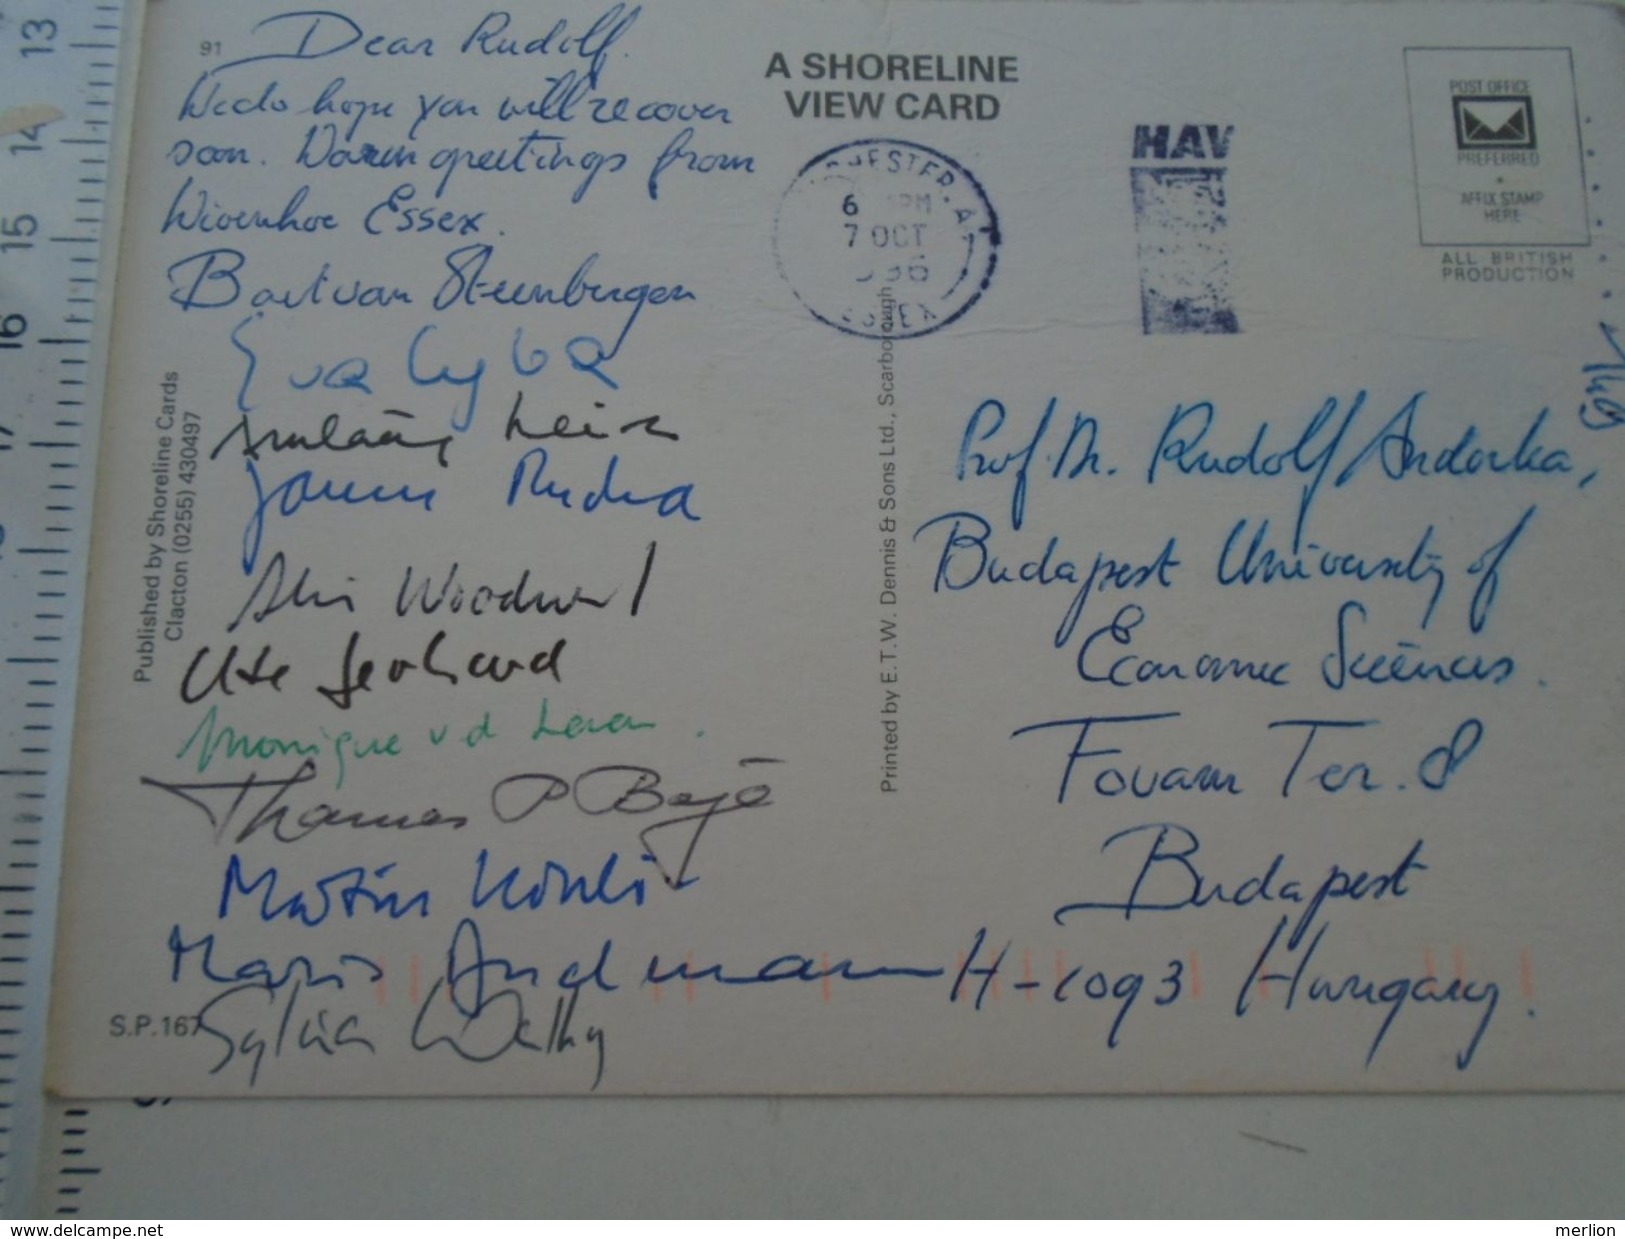 91
Dear Rudolf.
We do hope you will recover
soon. Warm greetings from
Wivenhoe Essex.
Bart van Steenbergen
Eva Cyba
Woodward
Ute Gerhard
Monique v d
Thomas P Boje
Martin Kohli
Andmann
Sylvia Walby
S.P. 167
Published by Shoreline Cards
Clacton (0255) 430497
A SHORELINE
VIEW CARD
6 PM
7 OCT
ESSEX
HAV
POST OFFICE
PREFERRED
AFFIX STAMP
HERE
ALL BRITISH
PRODUCTION
Printed by E.T.W. Dennis & Sons Ltd., Scarborough
Prof. Dr. Rudolf Andorka,
Budapest University of
Economic Sciences.
Fovam Ter. 8
Budapest
H-1093 Hungary.
13
14
15
16
17
delcampe.net
merlion